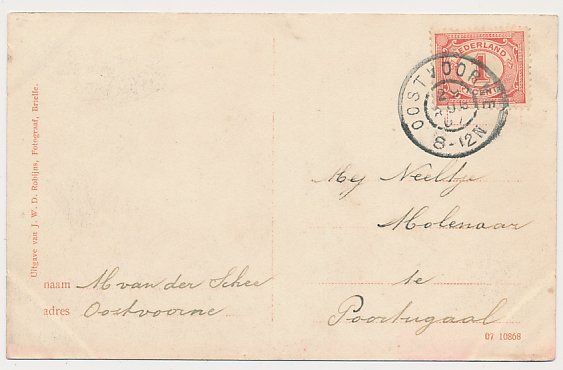 Uitgave van J. W. D. Robijns, Fotograaf, Brielle.
NEDERLAND
1
CENT
OOSTVOORNE
23
AUG
07
8-12N
Mej Neeltje
Molenaar
te
Poortugaal
naam M van der Schee
adres Oostvoorne
07 10868